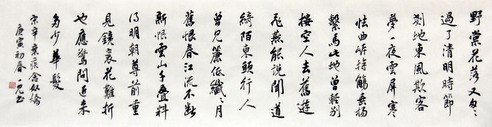 野棠花落又匆匆
過了清明時節
剗地東風欺客
夢一夜雲屏寒
怯曲岸持觴垂楊
繫馬此地曾輕別
樓空人去舊遊
飛燕能說聞道
綺陌東頭行人
曾見簾底纖纖月
舊恨春江流不斷
新恨雲山千疊料
得明朝尊前重
見鏡裏花難折
也應驚問近來
多少華髮
宋辛棄疾念奴嬌
庚寅初春